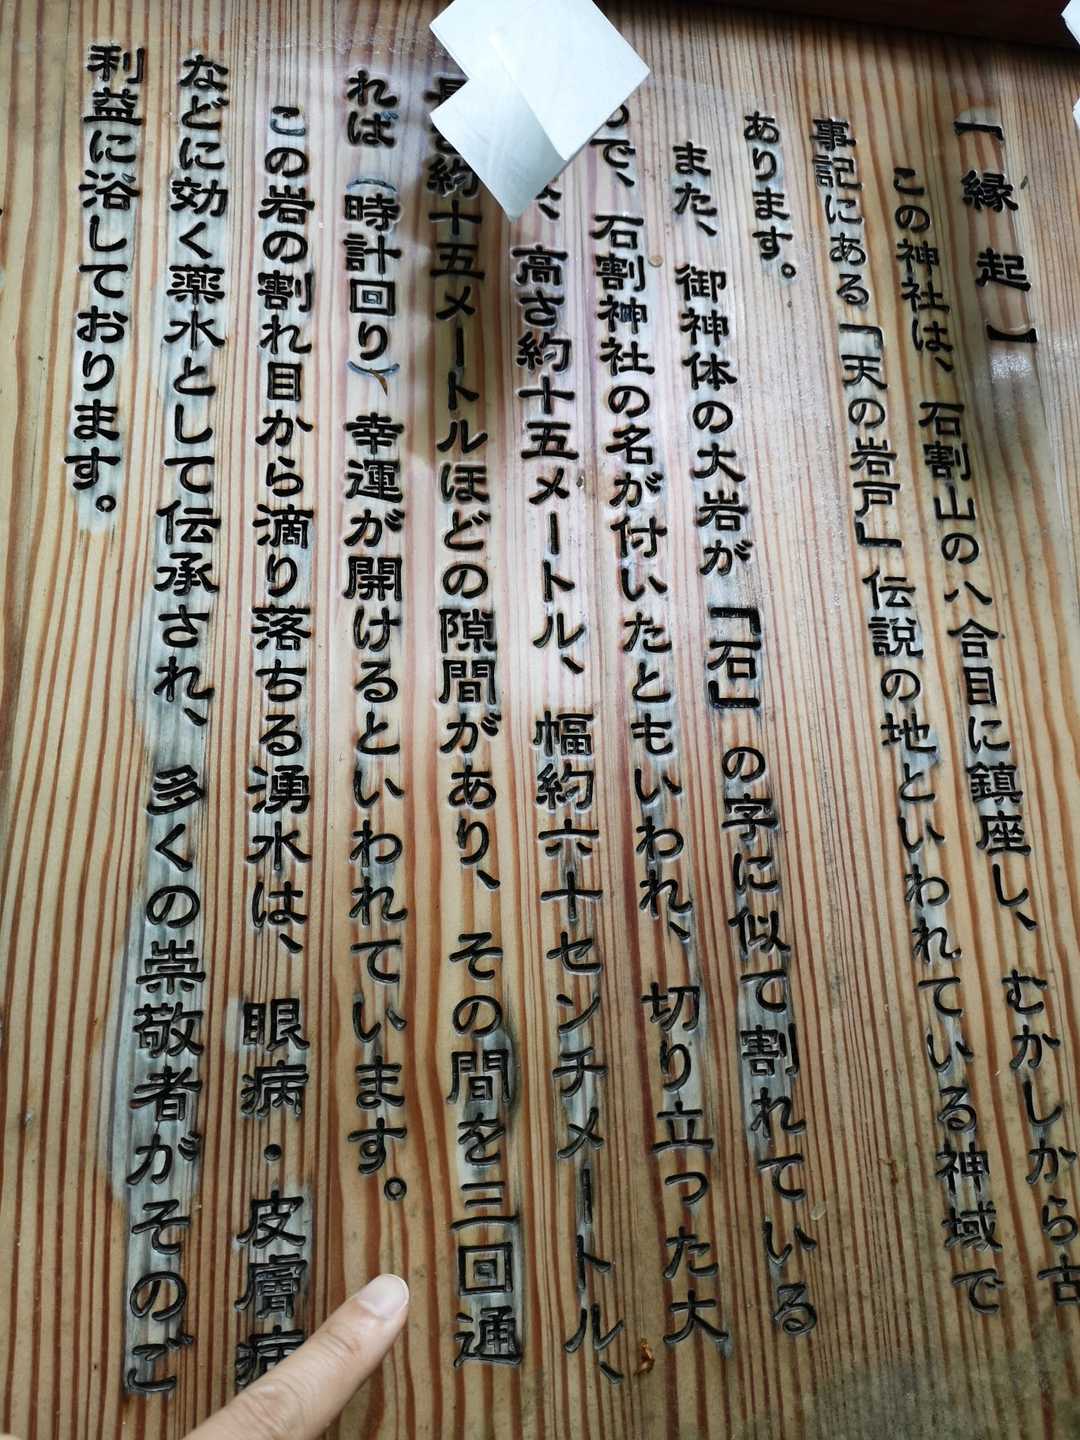 【縁起】
この神社は、石割山の八合目に鎮座し、むかしから古
事記にある「天の岩戸」伝説の地といわれている神域で
あります。
また、御神体の大岩が「石」の字に似て割れている
ので、石割神社の名が付いたともいわれ、切り立った大
、高さ約十五メートル、幅約六十センチメートル、
約十五メートルほどの隙間があり、その間を三回通
れば(時計回り)幸運が開けるといわれています。
この岩の割れ目から滴り落ちる湧水は、眼病・皮膚病
などに効く薬水として伝承され、多くの崇敬者がそのご
利益に浴しております。